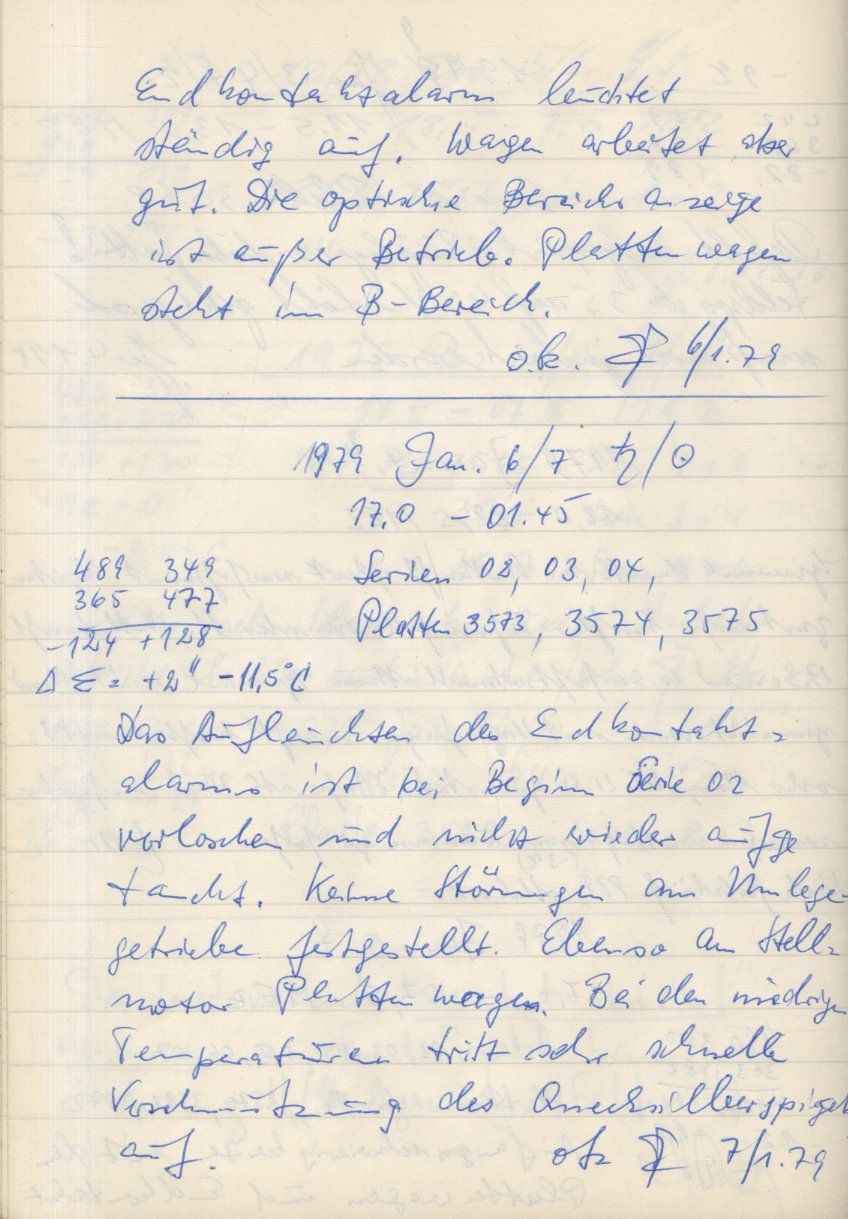 Endkontaktalarm leuchtet
ständig auf. Wagen arbeitet aber
gut. Die optische Bereichsanzeige
ist außer Betrieb. Plattenwagen
steht im B-Bereich.
o.k. 6/1.79
1979 Jan. 6/7 ♄/☉
17.0 - 01.45
489 349
365 477
-124 +128
Δ Σ = +2" -11,5°C
Serien 02, 03, 04,
Platten 3573, 3574, 3575
Das Aufleuchten des Endkontakt=
alarms ist bei Beginn Serie 02
verloschen und nicht wieder aufge
taucht. Keine Störungen am Umlege-
getriebe festgestellt. Ebenso am Stell=
motor Plattenwagen. Bei den niedrigen
Temperaturen tritt sehr schnelle
Verschmutzung des Quecksilberspiegel
auf. 7/1.79